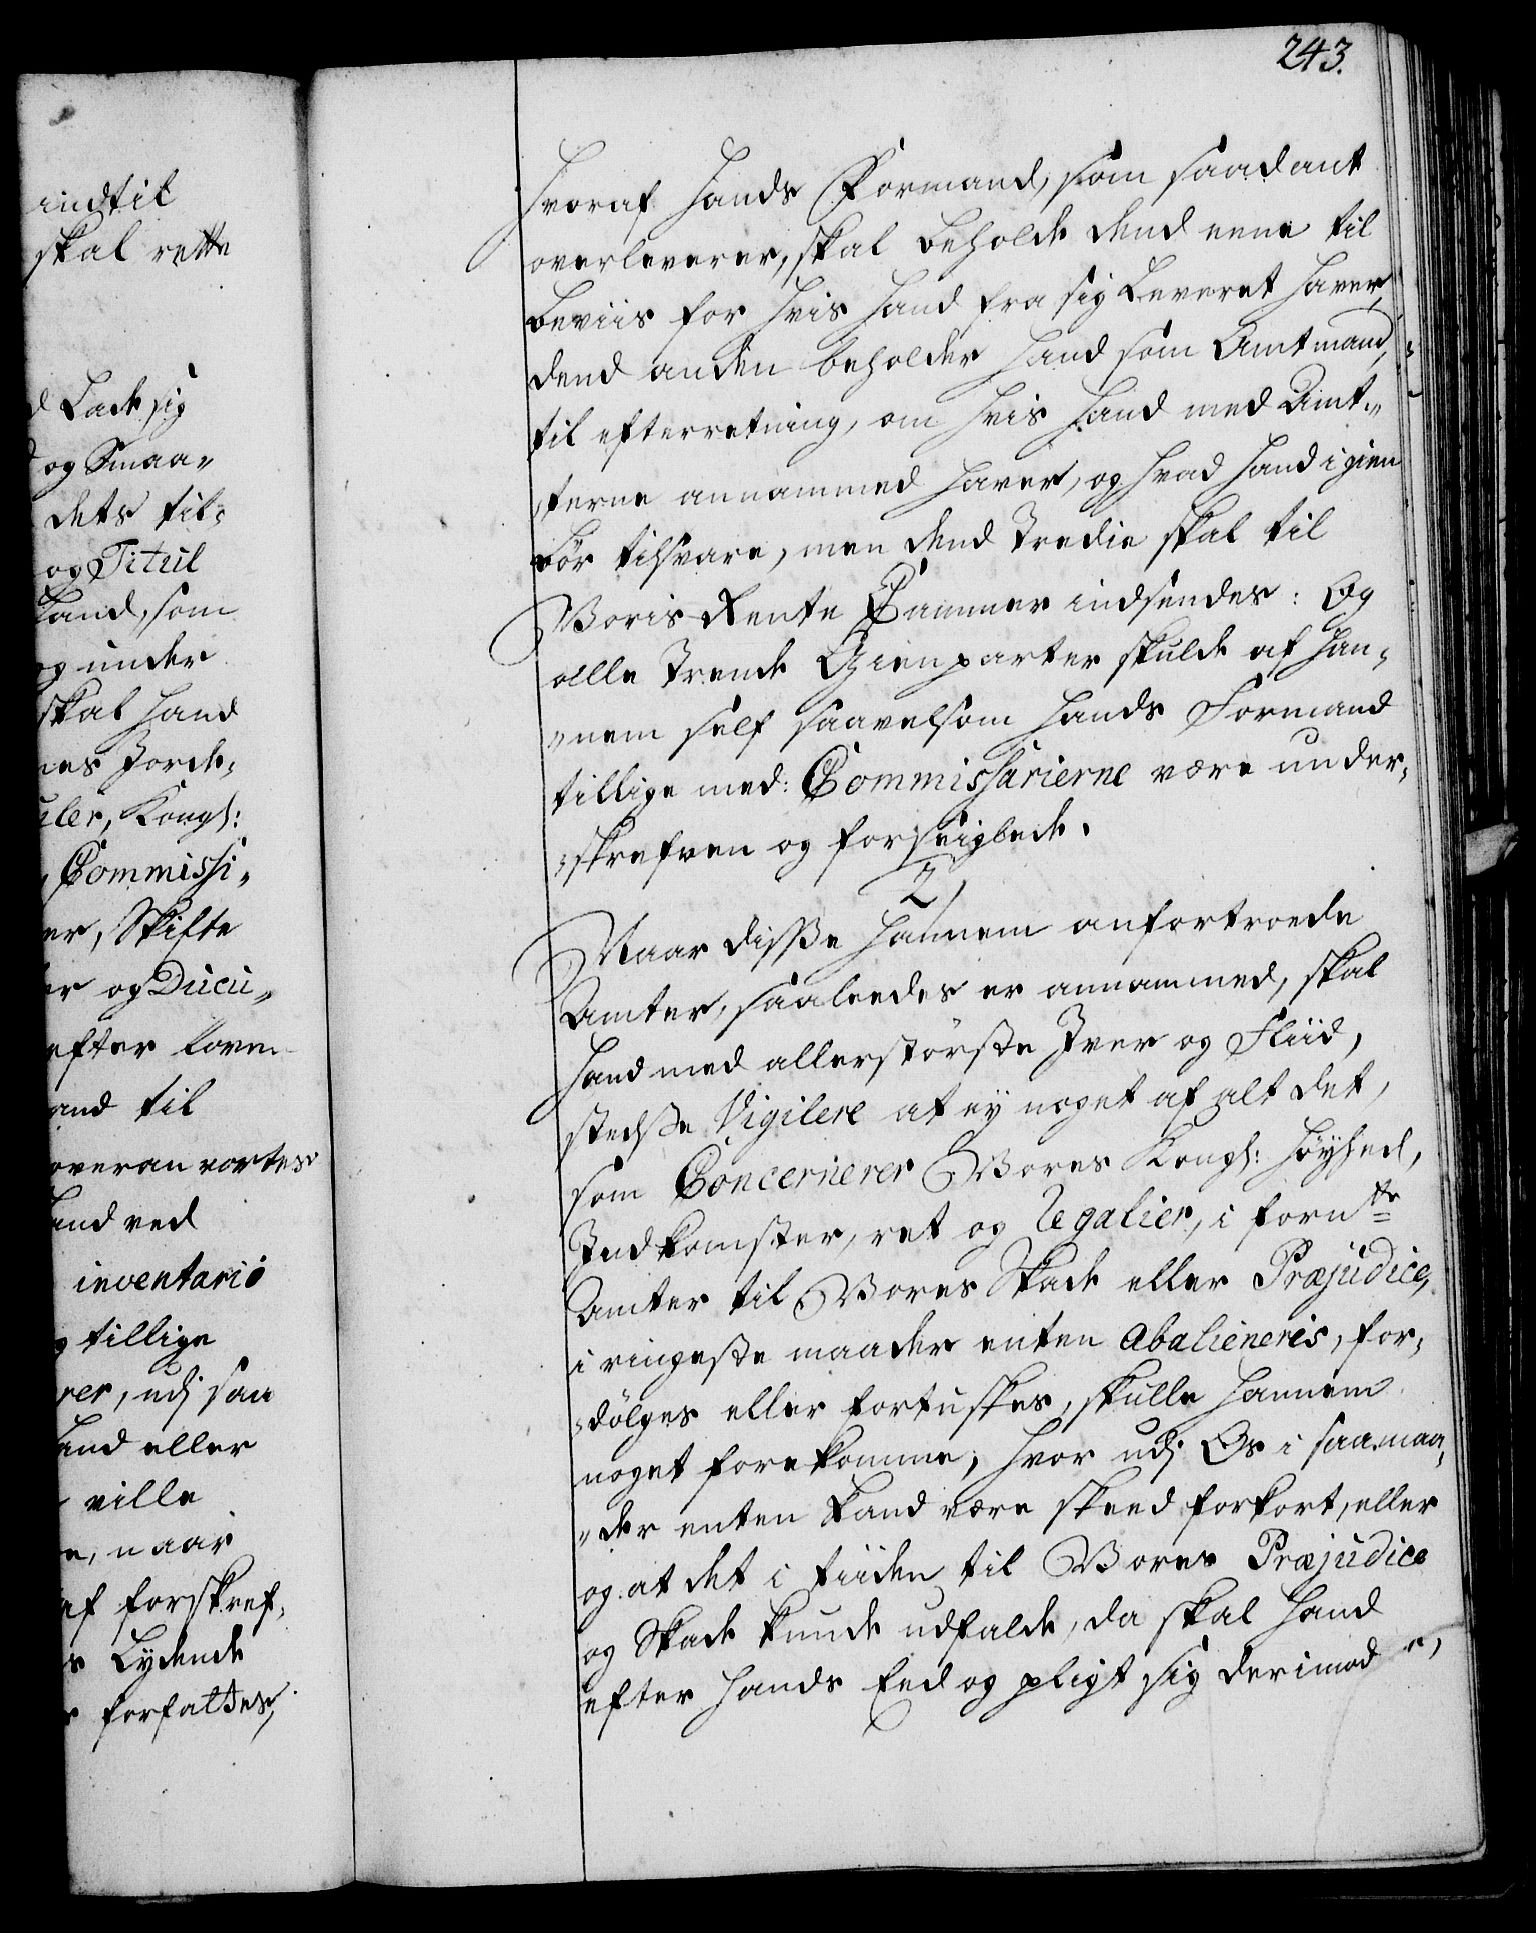 243.
indtil
skal rette
d Lade sig
og Smaa-
dets til-
og Titul
Land, som
og under
skal hand
nes Jorde-
uler, Kongl:
, Commissi-
er, Skifte
er og Ducu-
efter loven
and til
overanvortes
and ved
inventario
tillige
rer, udj saa
hand eller
ville
e, naar
af forskref-
s Lydende
r forfattes,
hvoraf hands Formand, som saadant
overleverer, skal beholde dend eene til
beviis for hvis hand fra sig Leveret haver,
dend anden beholder hand som Amtmand,
til efterretning, om hvis hand med Amt-
terne annammed haver, og hvad hand igien
bør tilsvare, men dend Tredie skal til
Voris Rente Cammer indsendes: Og
alle Trende Gienparter skulde af han-
nem self saavelsom hands Formand
tillige med Commissarierne være under-
skrefven og forseiglede.
2/
Naar disse hannem anfortroede
Amter, saaleedes er annammed, skal
hand med allerstørste Iver og Fliid,
stedsse Vigilere at ey noget af alt det,
som Concernerer Vores Kongl: høyhed,
Indkomster, ret og Regalier, i forn:te
Amter til Vores Skade eller Præjudice,
i ringeste maader enten abalieneris, for-
dølges eller fortuskes, skulle hannem
noget forekomme, hvor udj Os i saa maa-
der enten kand være skeed forkort, eller
og at det i tiiden til Vores Præjudice
og Skade kunde udfalde, da skal hand
efter hands Eed og pligt sig derimod